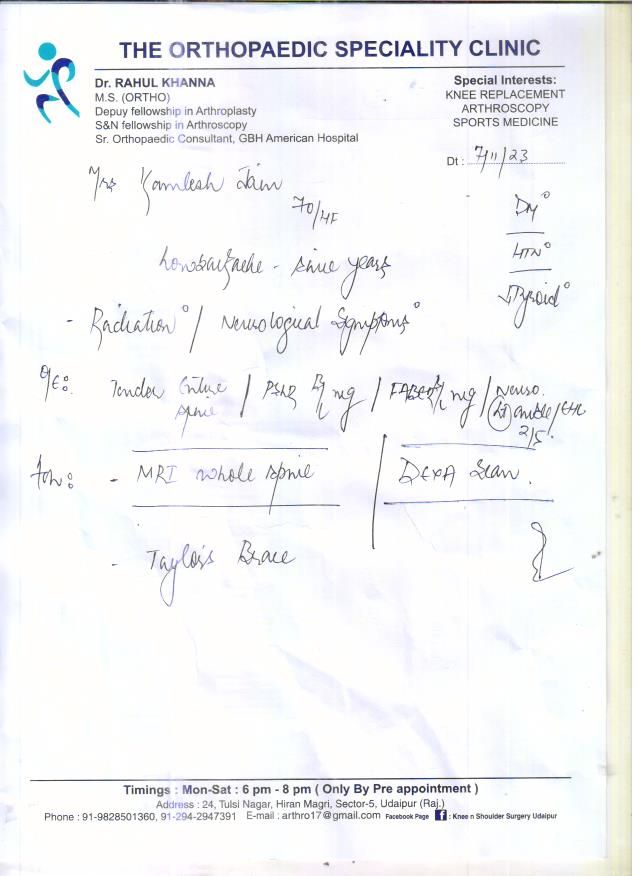 THE ORTHOPAEDIC SPECIALITY CLINIC
Dr. RAHUL KHANNA
M.S. (ORTHO)
Depuy fellowship in Arthroplasty
S&N fellowship in Arthroscopy
Sr. Orthopaedic Consultant, GBH American Hospital
Special Interests:
KNEE REPLACEMENT
ARTHROSCOPY
SPORTS MEDICINE
Dt : 7/11/23
Mrs Kamlesh Jain
70/HF
DM°
HTN°
Thyroid°
Lowbackache - since years
- Radiation° / Neurological Symptoms°
O/E: Tender Entire spine / / FABER B/L neg / Neuro. Lt ankle/EHL 2/5.
- MRI whole spine
DEXA Scan.
- Taylor's Brace
Timings : Mon-Sat : 6 pm - 8 pm ( Only By Pre appointment )
Address : 24, Tulsi Nagar, Hiran Magri, Sector-5, Udaipur (Raj.)
Phone : 91-9828501360, 91-294-2947391 E-mail : arthro17@gmail.com Facebook Page f : Knee n Shoulder Surgery Udaipur